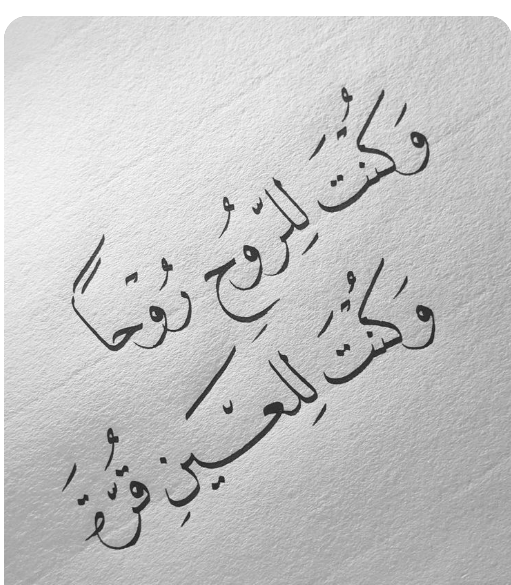 وَكُنْتَ لِلرُّوحِ رُوْحاً
وَكُنْتَ لِلعَّينِ قُرَّةَ